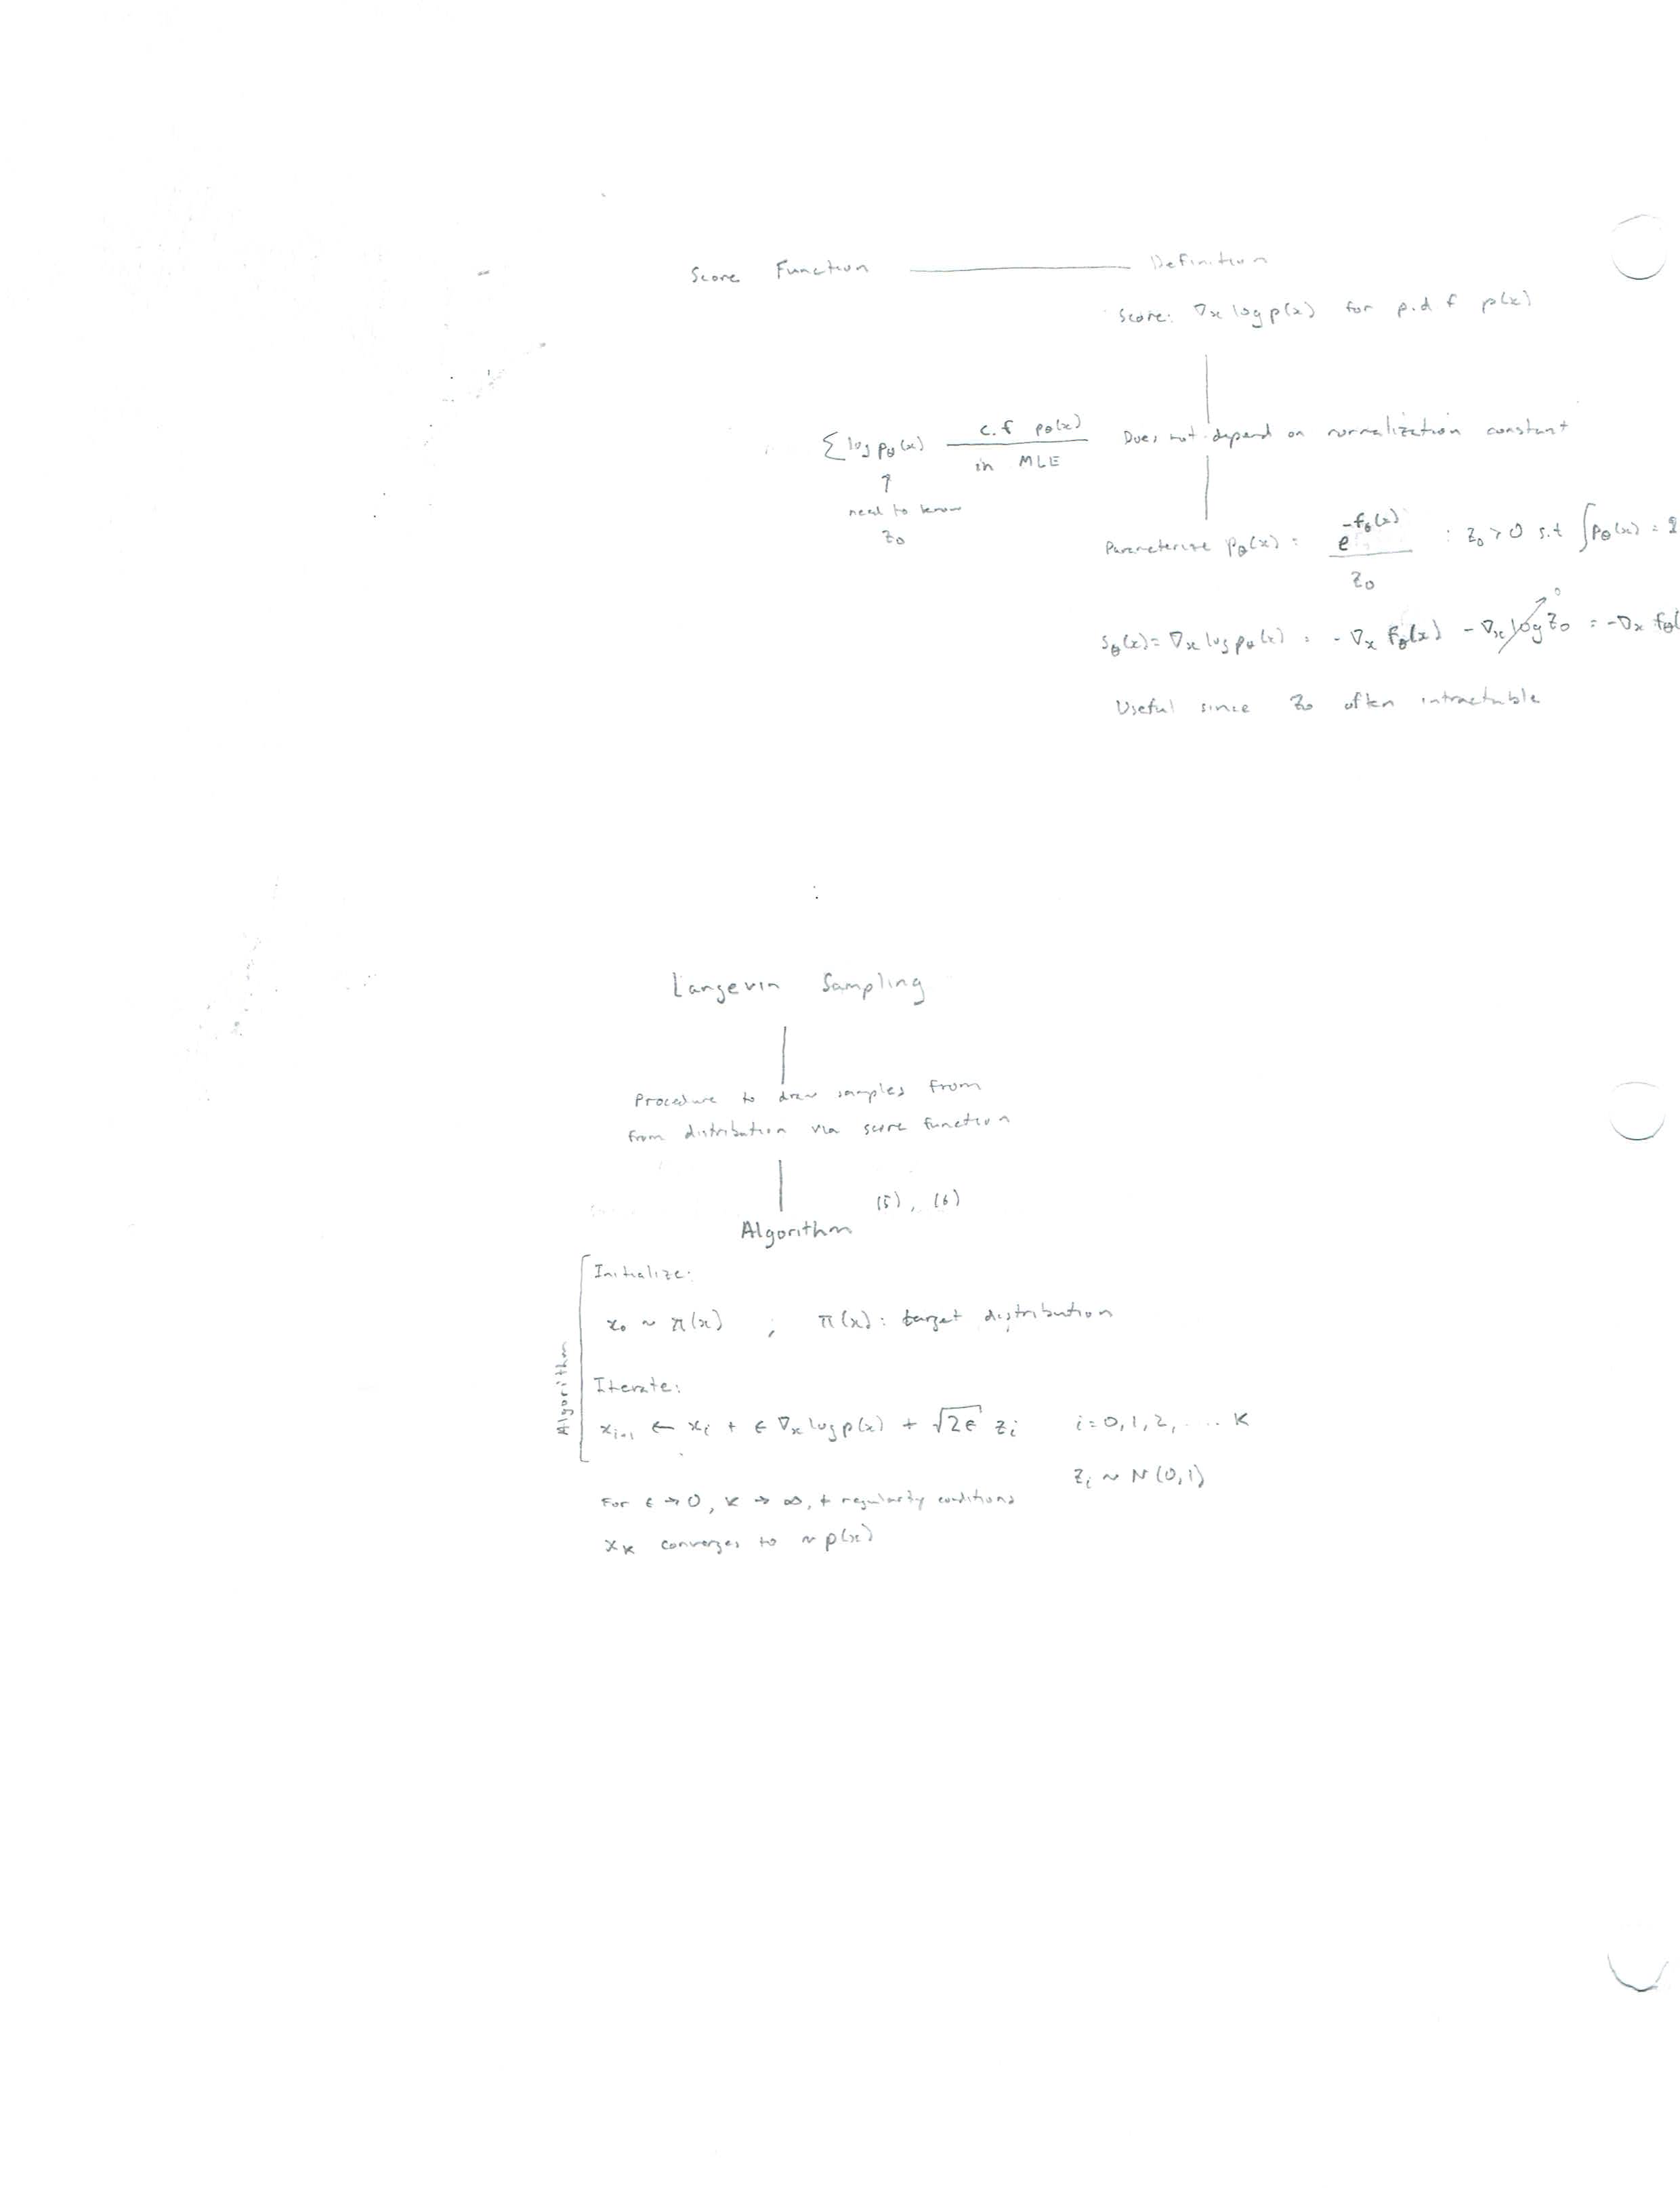 Score Function — Definition
Score: ∇x log p(x) for p.d f p(x)
∑ log pθ(x) c.f pθ(x) in MLE Does not depend on normalization constant
↑
need to know
Z0
Parameterise pθ(x) = e^{-fθ(x)} / Z0 : Z0 > 0 s.t ∫pθ(x) = 1
sθ(x) = ∇x log pθ(x) = -∇x fθ(x) - ∇x log Z0 → 0 = -∇x fθ(
Useful since Z0 often intractable
Langevin Sampling
Procedure to draw samples from
from distribution via score function
(5), (6)
Algorithm
Algorithm
Initialize:
x0 ~ π(x) ; π(x): target distribution
Iterate:
xi+1 ← xi + ϵ ∇x log p(x) + √2ϵ zi i=0,1,2, ... K
zi ~ N(0,1)
For ϵ → 0, K → ∞, + regularity conditions
xK converges to ~ p(x)